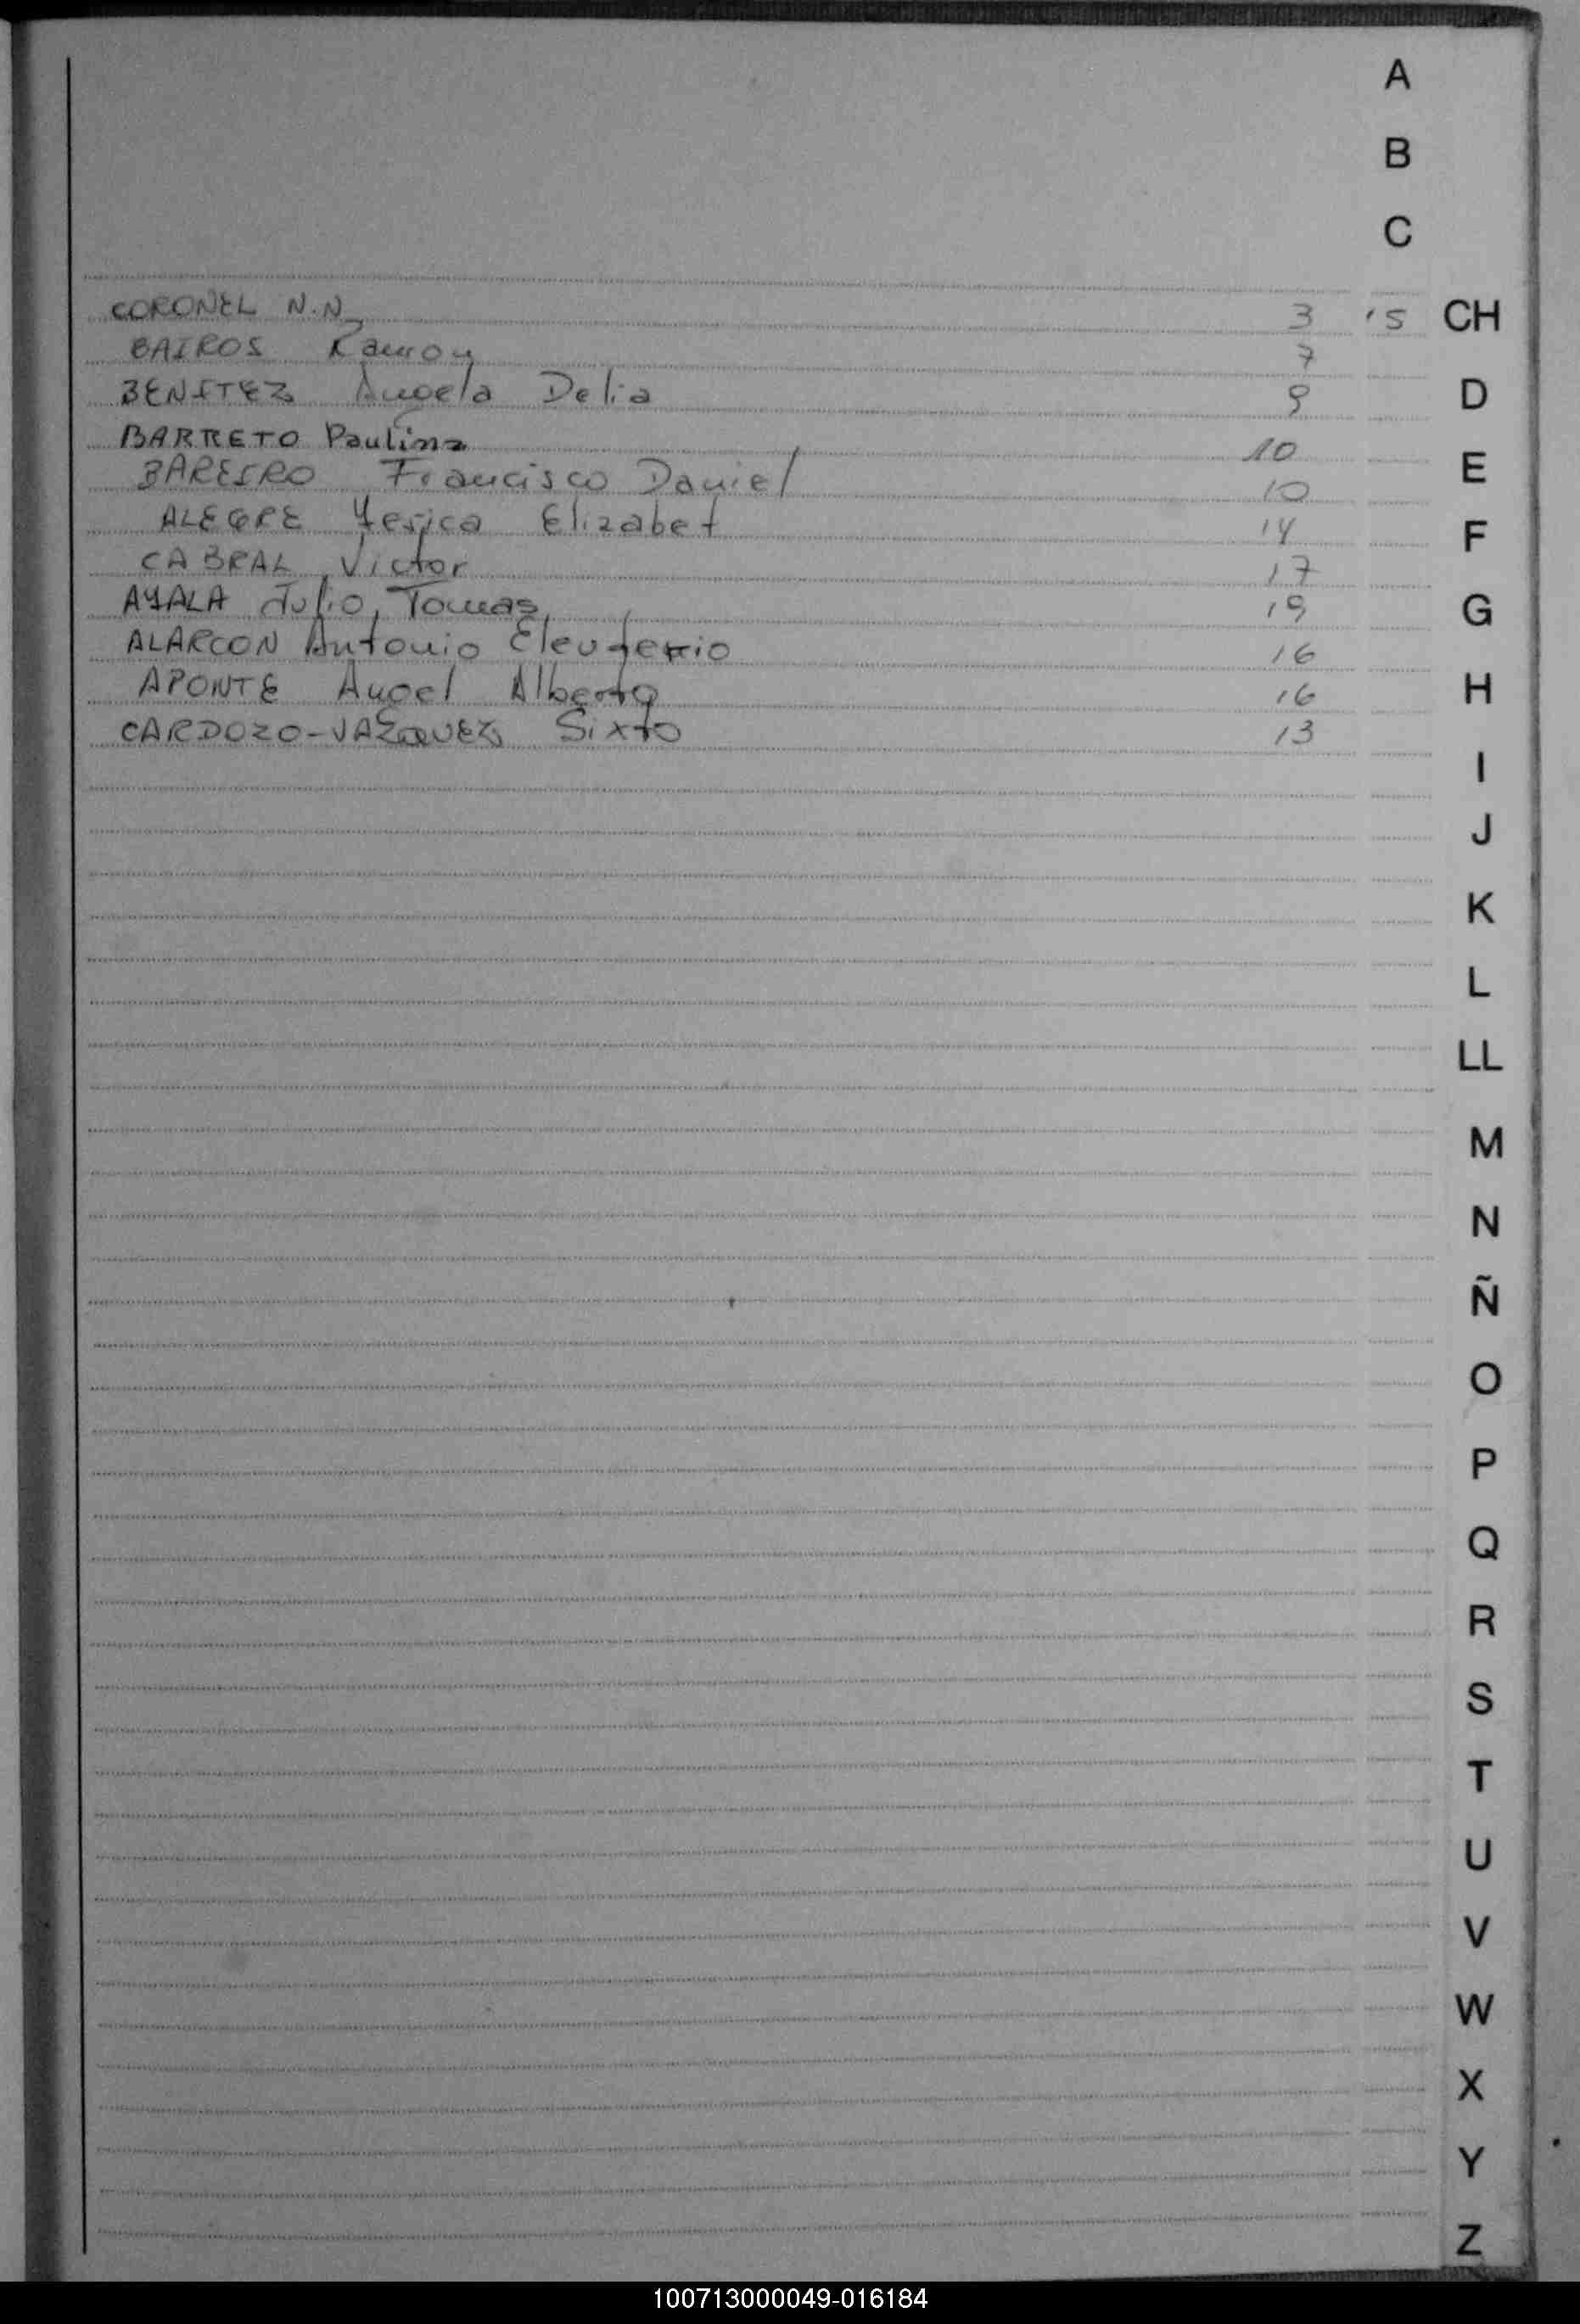 A
B
C
CORONEL N.N. 3 '5 CH
BAIROS Ramon 7
BENITEZ Angela Delia 9 D
BARRETO Paulina 10
BAREIRO Francisco Daniel 10 E
ALEGRE Yesica Elizabet 14 F
CABRAL, Victor 17
AYALA Julio, Tomas 19 G
ALARCON Antonio Eleuterio 16
APONTE Angel Alberto 16 H
CARDOZO-VAZQUEZ Sixto 13
I
J
K
L
LL
M
N
Ñ
O
P
Q
R
S
T
U
V
W
X
Y
Z
100713000049-016184